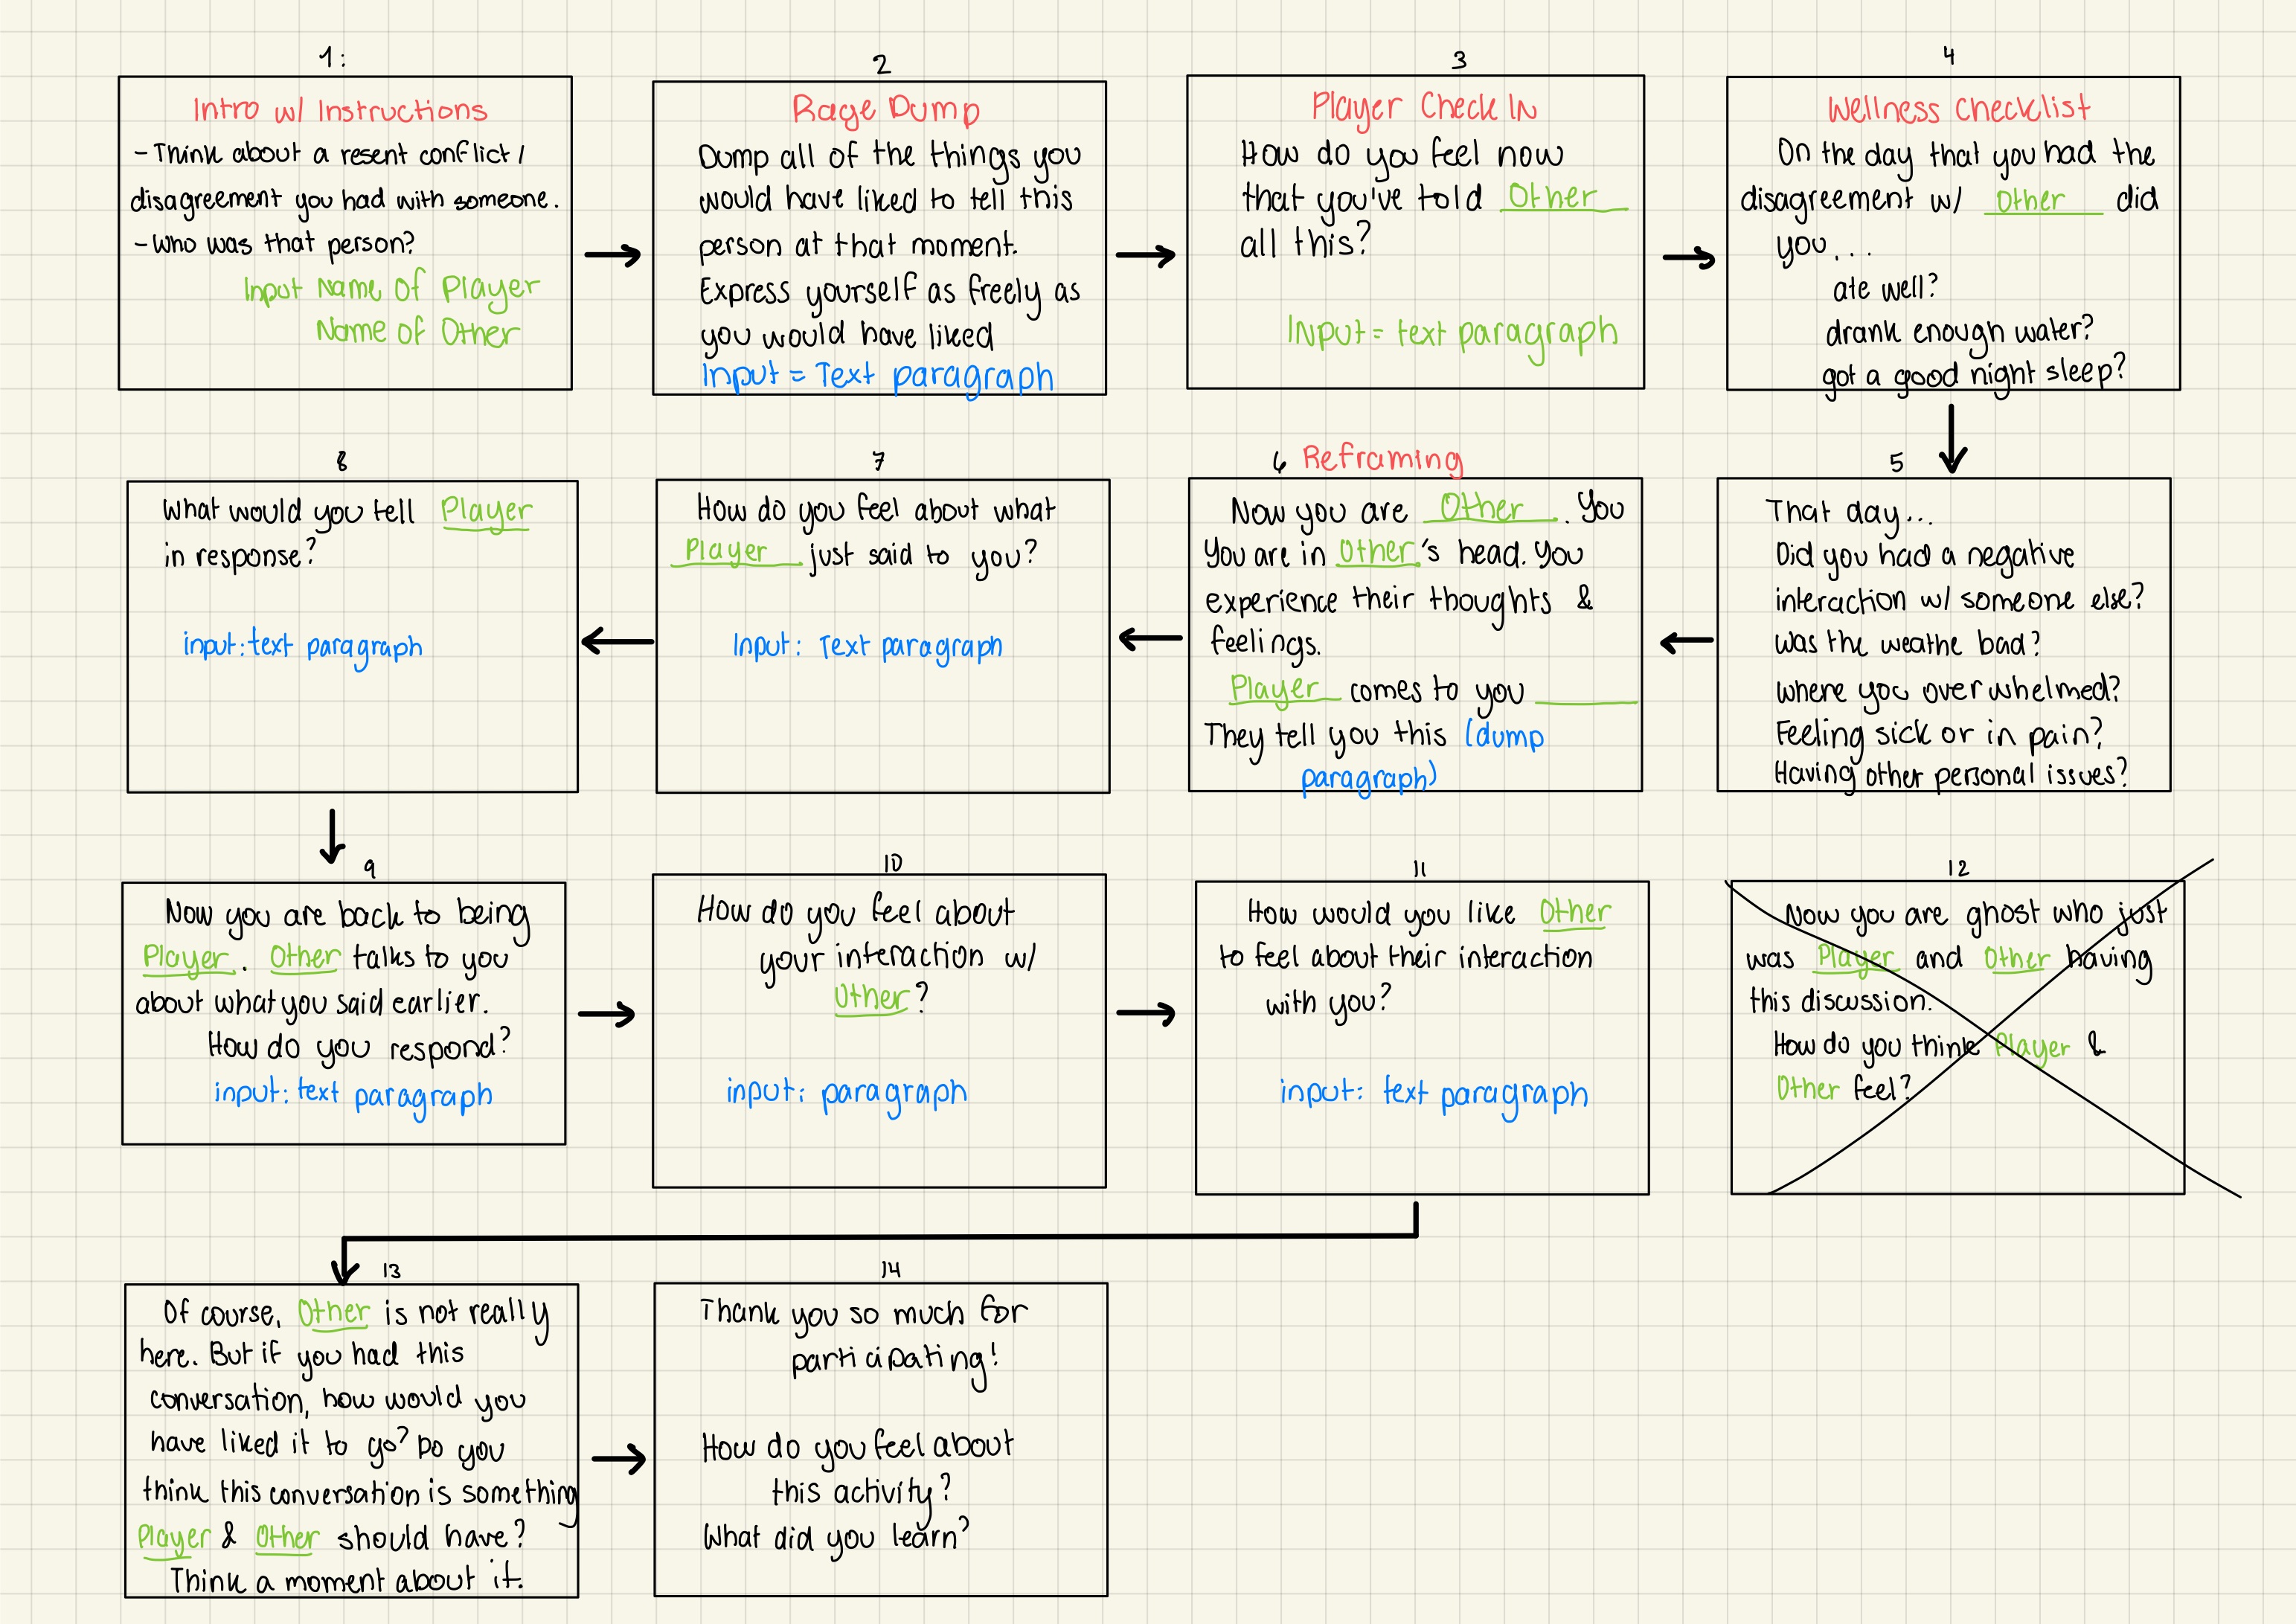 1:
Intro w/ Instructions
- Think about a resent conflict /
disagreement you had with someone.
- Who was that person?
Input Name Of Player
Name of Other
2
Rage Dump
Dump all of the things you
would have liked to tell this
person at that moment.
Express yourself as freely as
you would have liked
Input = Text paragraph
3
Player Check In
How do you feel now
that you've told Other
all this?
Input = text paragraph
4
Wellness Checklist
On the day that you had the
disagreement w/ Other did
you ...
ate well?
drank enough water?
got a good night sleep?
5
That day...
Did you had a negative
interaction w/ someone else?
was the weathe bad?
where you over whelmed?
Feeling sick or in pain?
Having other personal issues?
6 Reframing
Now you are Other. You
You are in Other's head. You
experience their thoughts &
feelings.
Player comes to you
They tell you this (dump
paragraph)
7
How do you feel about what
Player just said to you?
Input: Text paragraph
8
What would you tell Player
in response?
input: text paragraph
9
Now you are back to being
Player. Other talks to you
about what you said earlier.
How do you respond?
input: text paragraph
10
How do you feel about
your interaction w/
Other?
input: paragraph
11
How would you like Other
to feel about their interaction
with you?
input: text paragraph
12
Now you are ghost who just
was Player and Other having
this discussion.
How do you think Player &
Other feel?
13
Of course, Other is not really
here. But if you had this
conversation, how would you
have liked it to go? Do you
think this conversation is something
Player & Other should have?
Think a moment about it.
14
Thank you so much for
participating!
How do you feel about
this activity?
What did you learn?